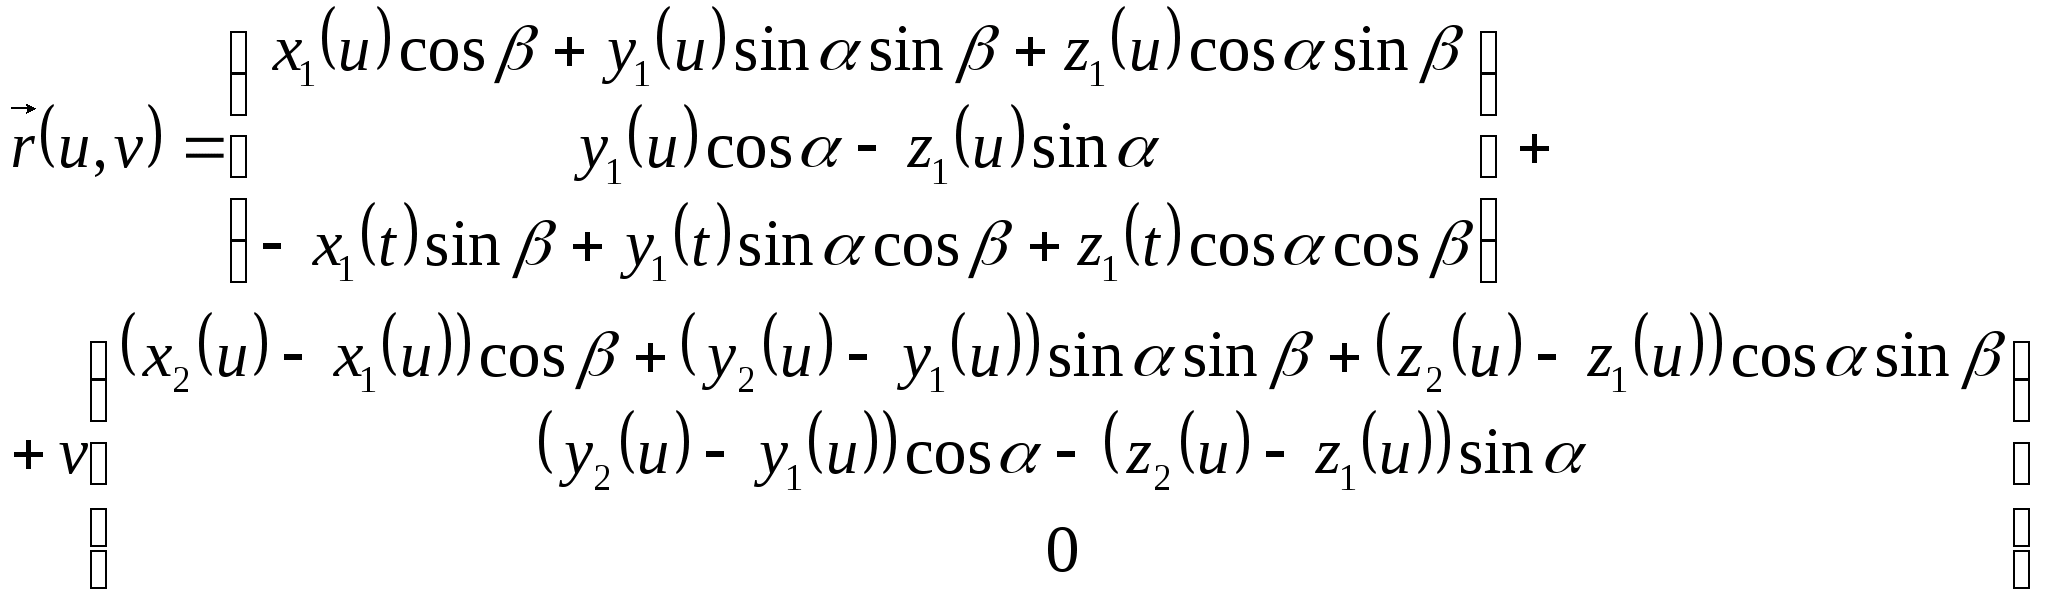 r⃗(u,v) = ( x₁(u)cos β + y₁(u)sin α sin β + z₁(u)cos α sin β
y₁(u)cos α − z₁(u)sin α
− x₁(t)sin β + y₁(t)sin α cos β + z₁(t)cos α cos β ) +
+ v ( (x₂(u) − x₁(u))cos β + (y₂(u) − y₁(u))sin α sin β + (z₂(u) − z₁(u))cos α sin β
(y₂(u) − y₁(u))cos α − (z₂(u) − z₁(u))sin α
0 )